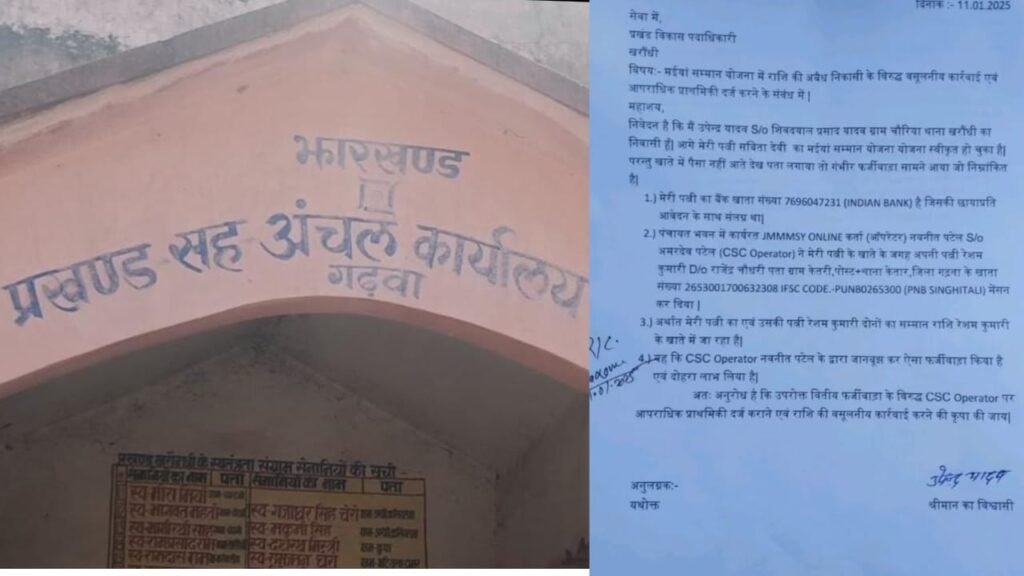 झारखण्ड
प्रखण्ड सह अंचल कार्यालय
गढ़वा
प्रखण्ड खरौंधी के स्वतंत्रता संग्राम सेनानियों की सूची
सेनानियों का नाम पता सेनानियों का नाम पता
स्व० गजाधर सिंह चेरो
दिनांक :- 11.01.2025
सेवा में,
प्रखंड विकास पदाधिकारी
खरौंधी
विषय:- मईयां सम्मान योजना में राशि की अवैध निकासी के विरुद्ध वसूलनीय कार्रवाई एवं
आपराधिक प्राथमिकी दर्ज करने के संबंध में |
महाशय,
निवेदन है कि मैं उपेन्द्र यादव S/o शिवदयाल प्रसाद यादव ग्राम चौरिया थाना खरौंधी का
निवासी हूँ| आगे मेरी पत्नी सबिता देवी का मईयां सम्मान योजना योजना स्वीकृत हो चुका है|
परन्तु खाते में पैसा नहीं आते देख पता लगाया तो गंभीर फर्जीवाड़ा सामने आया जो निम्नांकित
है|
1.) मेरी पत्नी का बैंक खाता संख्या 7696047231 (INDIAN BANK) है जिसकी छायाप्रति
आवेदन के साथ संलग्न था|
2.) पंचायत भवन में कार्यरत JMMMSY ONLINE कर्ता (ऑपरेटर) नवनीत पटेल S/o
अमरदेव पटेल (CSC Operator) ने मेरी पत्नी के खाते के जगह अपनी पत्नी रेशम
कुमारी D/o राजेंद्र चौधरी पता ग्राम केतरी,पोस्ट+थाना केतार,जिला गढ़वा के खाता
संख्या 2653001700632308 IFSC CODE.-PUNB0265300 (PNB SINGHITALI) मेंसन
कर दिया |
3.) अर्थात मेरी पत्नी का एवं उसकी पत्नी रेशम कुमारी दोनों का सम्मान राशि रेशम कुमारी
के खाते में जा रहा है|
4.) यह कि CSC Operator नवनीत पटेल के द्वारा जानबूझ कर ऐसा फर्जीवाड़ा किया है
एवं दोहरा लाभ लिया है|
अतः अनुरोध है कि उपरोक्त वित्तीय फर्जीवाड़ा के विरुद्ध CSC Operator पर
आपराधिक प्राथमिकी दर्ज कराने एवं राशि की वसूलनीय कार्रवाई करने की कृपा की जाय|
उपेन्द्र यादव
अनुलग्नक:-
यथोक्त
श्रीमान का विश्वासी